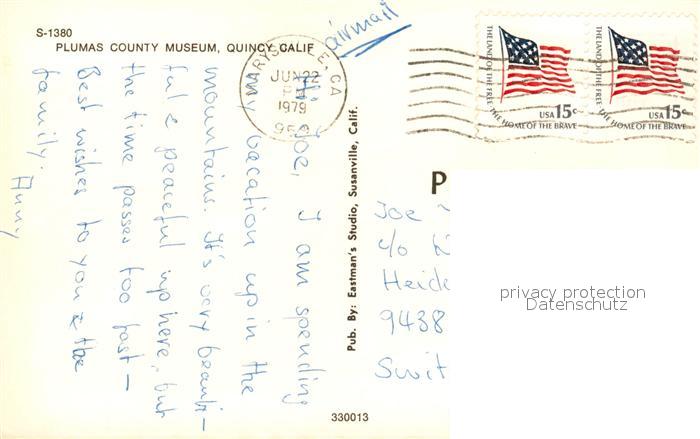 S-1380
PLUMAS COUNTY MUSEUM, QUINCY, CALIF
airmail
MARYSVILLE, CA
JUN 22
PM
1979
959
THE LAND OF THE FREE
USA 15c
THE HOME OF THE BRAVE
THE LAND OF THE FREE
USA 15c
THE HOME OF THE BRAVE
Hi Joe, I am spending
my vacation up in the
mountains. It's very beauti-
ful & peaceful up here, but
the time passes too fast –
Best wishes to you & the
family.
Pub. By: Eastman's Studio, Susanville, Calif.
P
Joe
c/o
Heide
9438
Swit
privacy protection
Datenschutz
330013